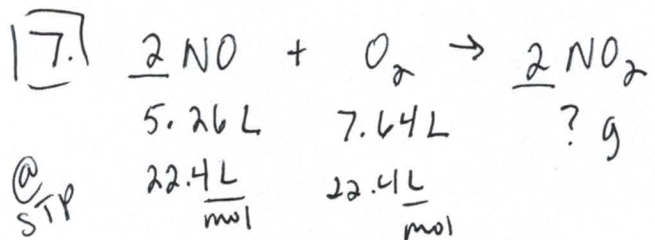 7. 2 NO + O₂ → 2 NO₂
5.26 L 7.64 L ? g
@ STP 22.4 L/mol 22.4 L/mol